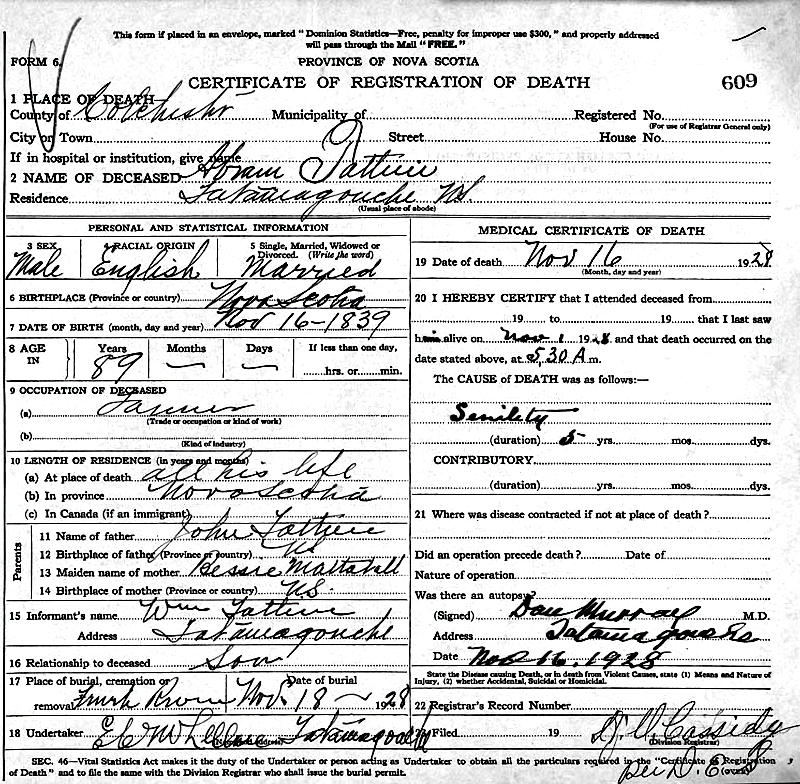 This form if placed in an envelope, marked "Dominion Statistics—Free, penalty for improper use $300," and properly addressed
will pass through the Mail "FREE."
FORM 6.
PROVINCE OF NOVA SCOTIA
CERTIFICATE OF REGISTRATION OF DEATH
609
1 PLACE OF DEATH
County of Colchester Municipality of Registered No.
(For use of Registrar General only)
City or Town Street House No.
If in hospital or institution, give name
2 NAME OF DECEASED Abram Tattrie
Residence Tatamagouche NS.
(Usual place of abode)
PERSONAL AND STATISTICAL INFORMATION
3 SEX Male
4 RACIAL ORIGIN English
5 Single, Married, Widowed or Divorced. (Write the word) Married
6 BIRTHPLACE (Province or country) Nova Scotia
7 DATE OF BIRTH (month, day and year) Nov 16-1839
8 AGE IN Years 89 Months — Days — If less than one day, hrs. or min.
9 OCCUPATION OF DECEASED
(a)
(Trade or occupation or kind of work)
(b)
(Kind of industry)
10 LENGTH OF RESIDENCE (in years and months)
(a) At place of death all his life
(b) In province Nova Scotia
(c) In Canada (if an immigrant)
Parents
11 Name of father John Tattrie
12 Birthplace of father (Province or country) NS
13 Maiden name of mother Bessie Mattatall
14 Birthplace of mother (Province or country) NS.
15 Informant's name Wm Tattrie
Address Tatamagouche
16 Relationship to deceased Son
17 Place of burial, cremation or removal River Date of burial Nov. 18 — 1928
18 Undertaker Tatamagouche
(Name and address)
MEDICAL CERTIFICATE OF DEATH
19 Date of death Nov 16 1928
(Month, day and year)
20 I HEREBY CERTIFY that I attended deceased from
19 to 19 that I last saw
him alive on Nov 1 1928 and that death occurred on the
date stated above, at 5.30 A m.
The CAUSE of DEATH was as follows:—
Senility
(duration) 5 yrs. mos. dys.
CONTRIBUTORY
(duration) yrs. mos. dys.
21 Where was disease contracted if not at place of death?
Did an operation precede death? Date of
Nature of operation
Was there an autopsy?
(Signed) Dan Murray M.D.
Address Tatamagouche
Date Nov 16. 1928
State the Disease causing Death, or in death from Violent Causes, state (1) Means and Nature of
Injury, (2) whether Accidental, Suicidal or Homicidal.
22 Registrar's Record Number
23 Filed 19 Cassidy
(Division Registrar)
SEC. 46—Vital Statistics Act makes it the duty of the Undertaker or person acting as Undertaker to obtain all the particulars required in the "Certificate of Registration
of Death" and to file the same with the Division Registrar who shall issue the burial permit.
(over)